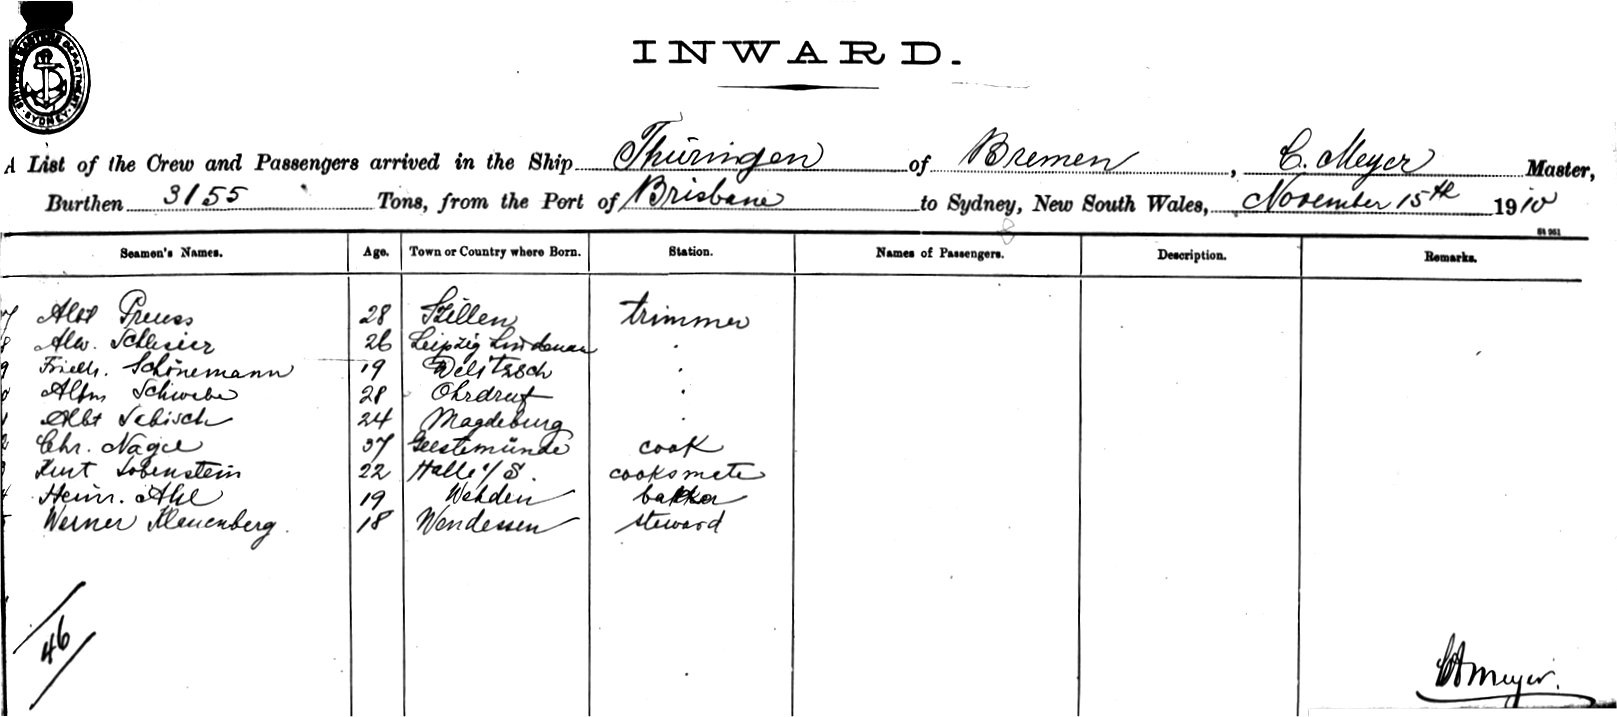 INWARD.
A List of the Crew and Passengers arrived in the Ship Thüringen of Bremen, C. Meyer Master,
Burthen 3155 Tons, from the Port of Brisbane to Sydney, New South Wales, November 15th 1910
Seamen's Names. Age. Town or Country where Born. Station. Names of Passengers. Description. Remarks.
7 Albt Preuss 28 Szillen trimmer
8 Alw. Schlesier 26 Leipzig Lindenau "
9 Friedr. Schönemann 19 Delitzsch "
0 Schwabe 28 Ohrdruf "
1 Albt 24 Magdeburg "
2 Chr. Nagel 37 Geestemünde cook
3 Kurt Lobenstein 22 Halle a/S. cooksmate
4 Heinr. Ahl 19 Wehden bakker
5 Werner Klauenberg. 18 Wendessen steward
46
Meyer.